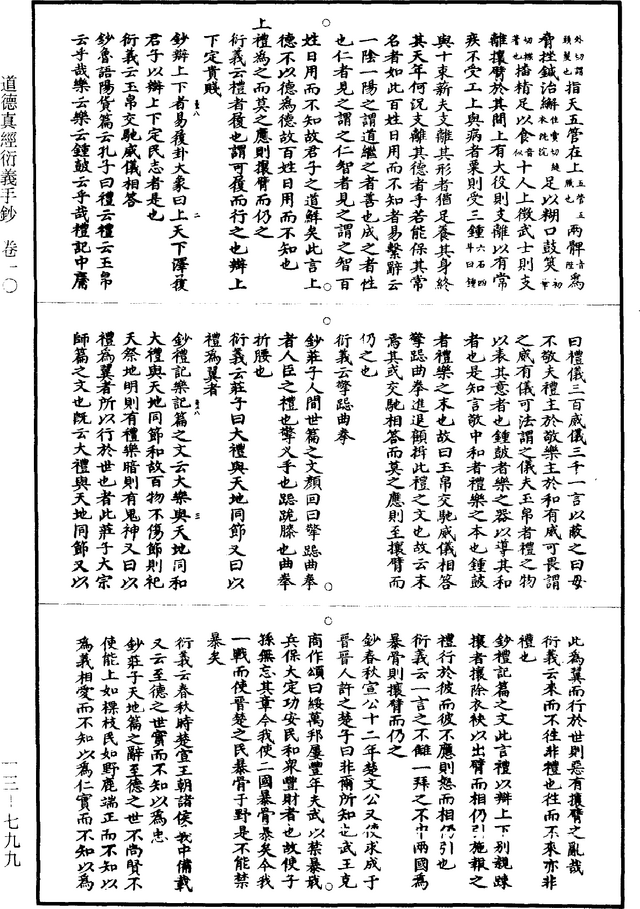 道德真經衍義手鈔　卷一〇
一三—七九九
外切謂
頭髮也指天五管在上五管五
臟也兩髀音
陛為
脅挫鍼治繲佳賣切
衣浣浣足以糊口鼓筴初
革
切播精足以食音
似十人上徵武士則支
離攘臂於其間上有大役則支離以有常
疾不受工上與病者粟則受三鍾六石四
斗曰鍾
與十束薪夫支離其形者猶足養其身終
其天年何況支離其德者乎若能保其常
名者如此百姓日用而不知者易繫辭云
一陰一陽之謂道繼之者善也成之者性
也仁者見之謂之仁智者見之謂之智百
姓日用而不知故君子之道鮮矣此言上
德不以德為德故百姓日用而不知也
上禮為之而莫之應則攘臂而仍之
衍義云禮者履也謂可履而行之也辯上
下定貴賤
鈔辯上下者易履卦大象曰上天下澤履
君子以辯上下定民志者是也
衍義云玉帛交馳威儀相答
鈔魯語陽貨篇云孔子曰禮云禮云玉帛
云乎哉樂云樂云鍾鼓云乎哉禮記中庸
曰禮儀三百威儀三千一言以蔽之曰毋
不敬夫禮主於敬樂主於和有威可畏謂
之威有儀可法謂之儀夫玉帛者禮之物
以表其意者也鍾鼓者樂之器以導其和
者也是知言敬中和者禮樂之本也鍾鼓
者禮樂之末也故曰玉帛交馳威儀相答
擎跽曲拳進退顧揖此禮之文也故云末
焉其或交馳相答而莫之應則至攘臂而
仍之也
衍義云擎跽曲拳
鈔莊子人間世篇之文顏回曰擎跽曲拳
者人臣之禮也擎叉手也跽跪膝也曲拳
折腰也
衍義云莊子曰大禮與天地同節又曰以
禮為翼者
鈔禮記樂記篇之文云大樂與天地同和
大禮與天地同節和故百物不傷節則祀
天祭地明則有禮樂暗則有鬼神又曰以
禮為翼者所以行於世也者此莊子大宗
師篇之文也既云大禮與天地同節又以
此為翼而行於世則惡有攘臂之亂哉
衍義云來而不往非禮也往而不來亦非
禮也
鈔禮記篇之文此言禮以辯上下別親踈
攘者攘除衣袂以出臂而相仍引施報之
禮行於彼而彼不應則怒而相仍引也
衍義云一言之不讎一拜之不中兩國為
暴骨則攘臂而仍之
鈔春秋宣公十二年楚文公又使求成于
晉晉人許之楚子曰非爾所知也武王克
商作頌曰綏萬邦屢豐年夫武以禁暴戢
兵保大定功安民和眾豐財者也故使子
孫無忘其章今我使二國暴骨暴矣今我
一戰而使晉楚之民暴骨于野是不能禁
暴矣
衍義云春秋時楚宣王朝諸侯我中備載
又云至德之世實而不知以為忠
鈔莊子天地篇之辭至德之世不尚賢不
使能上如標枝民如野鹿端正而不知以
為義相愛而不知以為仁實而不知以為